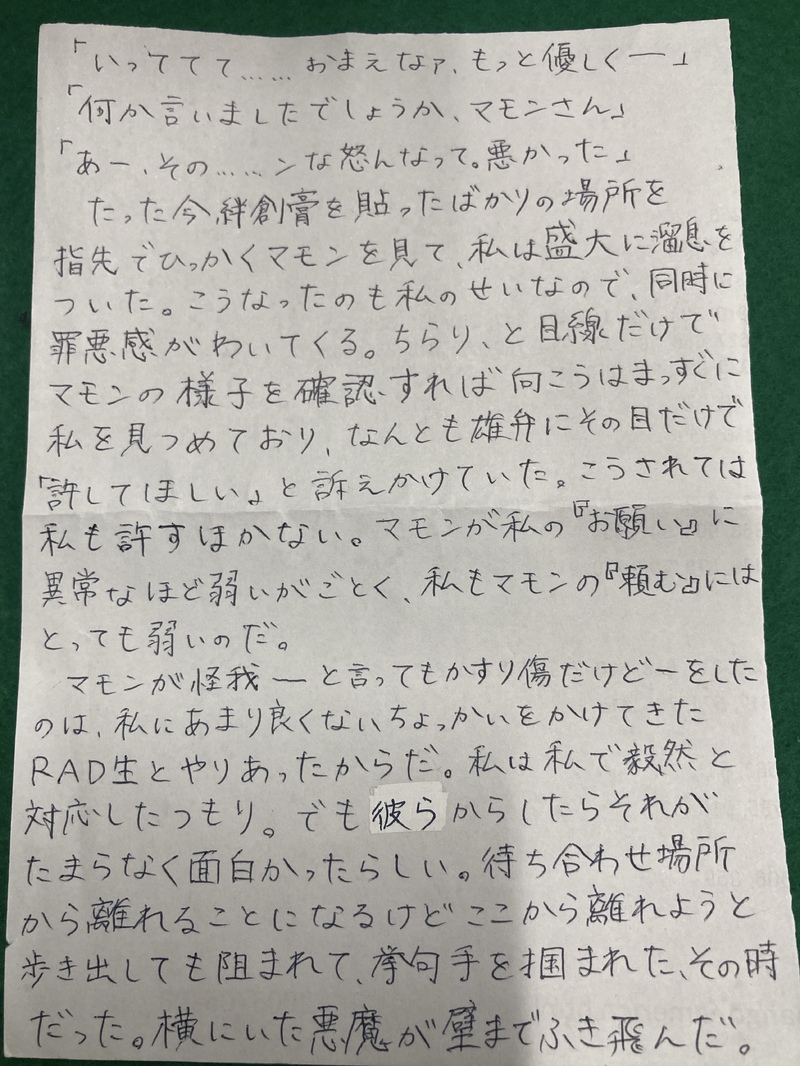 「いっててて……おまえなァ、もっと優しく―」
「何か言いましたでしょうか、マモンさん」
「あー、その……ンな怒んなって。悪かった」
たった今絆創膏を貼ったばかりの場所を
指先でひっかくマモンを見て、私は盛大に溜息を
ついた。こうなったのも私のせいなので、同時に
罪悪感がわいてくる。ちらり、と目線だけで
マモンの様子を確認すれば向こうはまっすぐに
私を見つめており、なんとも雄弁にその目だけで
「許してほしい」と訴えかけていた。こうされては
私も許すほかない。マモンが私の『お願い』に
異常なほど弱いがごとく、私もマモンの『頼む』には
とっても弱いのだ。
マモンが怪我―と言ってもかすり傷だけど―をした
のは、私にあまり良くないちょっかいをかけてきた
RAD生とやりあったからだ。私は私で毅然と
対応したつもり。でも彼らからしたらそれが
たまらなく面白かったらしい。待ち合わせ場所
から離れることになるけどここから離れようと
歩き出しても阻まれて、挙句手を掴まれた、その時
だった。横にいた悪魔が壁までふき飛んだ。